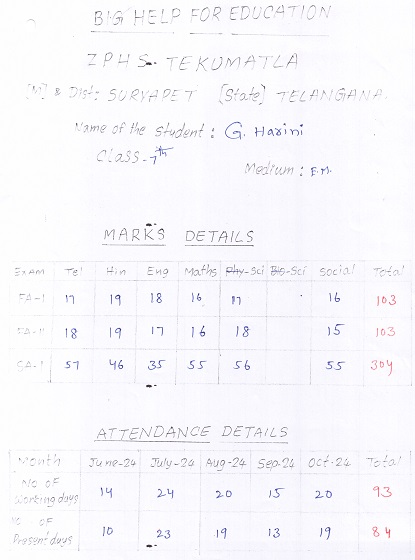 BIG HELP FOR EDUCATION
ZPHS. TEKUMATLA
[M] & Dist: SURYAPET [State] TELANGANA.
Name of the student : G. Harini
Class - 7th
Medium : E.M.
MARKS DETAILS
Exam Tel Hin Eng Maths Phy-Sci Bio-Sci Social Total
FA-I 17 19 18 16 17 16 103
FA-II 18 19 17 16 18 15 103
SA-I 57 46 35 55 56 55 304
ATTENDANCE DETAILS
Month June-24 July-24 Aug-24 Sep-24 Oct-24 Total
No of Working days 14 24 20 15 20 93
No of Present days 10 23 19 13 19 84